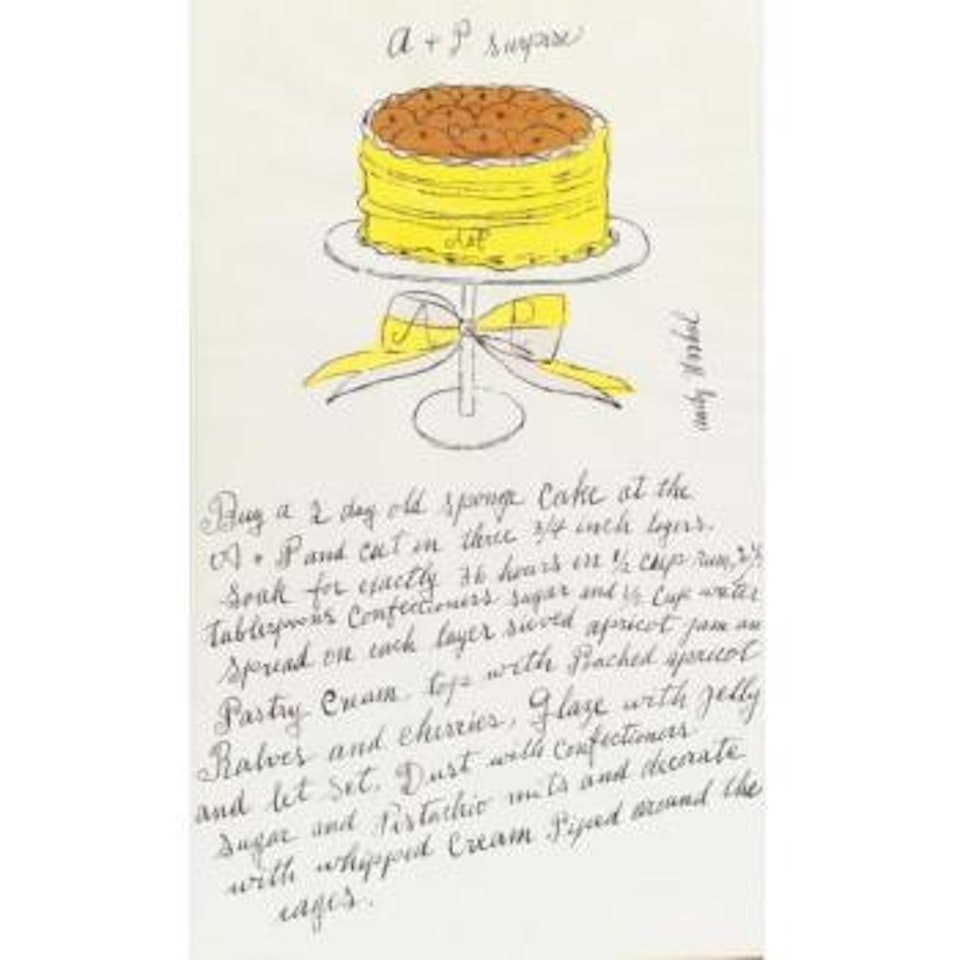 A + P surprise
A&P
A P
Andy Warhol
Buy a 2 day old sponge Cake at the
A + P and cut in three 3/4 inch layers.
Soak for exactly 36 hours in 1/2 cup rum, 2 1/2
tablespoons Confectioners sugar and 1/2 Cup water
spread on each layer sieved apricot jam an
Pastry Cream. top with Poached apricot
Halves and cherries, Glaze with jelly
and let set. Dust with confectioners
sugar and Pistachio nuts and decorate
with whipped Cream Piped around the
edges.